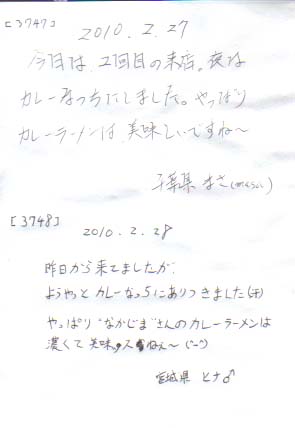 [3747]
2010. 2. 27
今日は、2回目の来店。夜は
カレーなっちにしました。やっぱり
カレーラーメンは美味しいですね〜
千葉県 まさ(masa)
[3748]
2010. 2. 28
昨日から来てましたが、
ようやっとカレーなっちにありつきました(汗)
やっぱり"なかじま"さんのカレーラーメンは
濃くて美味ぃスねぇ〜
宮城県 ヒナ♂